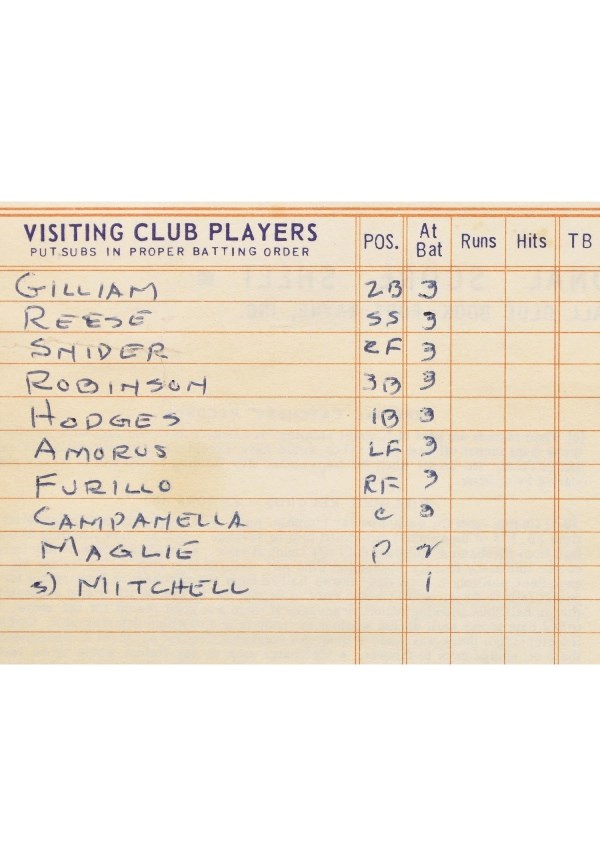 VISITING CLUB PLAYERS POS. At Bat Runs Hits TB
PUT SUBS IN PROPER BATTING ORDER
GILLIAM 2B 3
REESE SS 3
SNIDER CF 3
ROBINSON 3B 3
HODGES 1B 3
AMORUS LF 3
FURILLO RF 3
CAMPANELLA C 3
MAGLIE P 2
3) MITCHELL 1